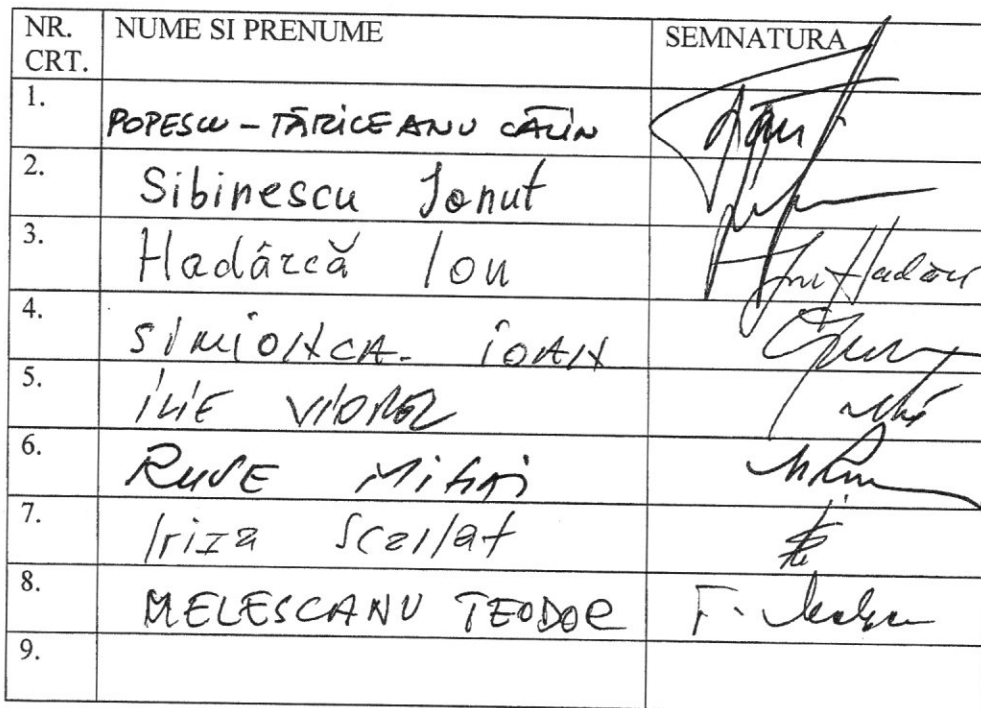 NR. CRT. NUME SI PRENUME SEMNATURA
1. POPESCU - TĂRICEANU CĂLIN
2. Sibinescu Ionut
3. Hadârcă Ion Ion Hadârcă
4. SIMIONCA IOAN
5. ILIE VIOREL
6. RUSE MIHAI
7. Iriza Scarlat
8. MELESCANU TEODOR
9.